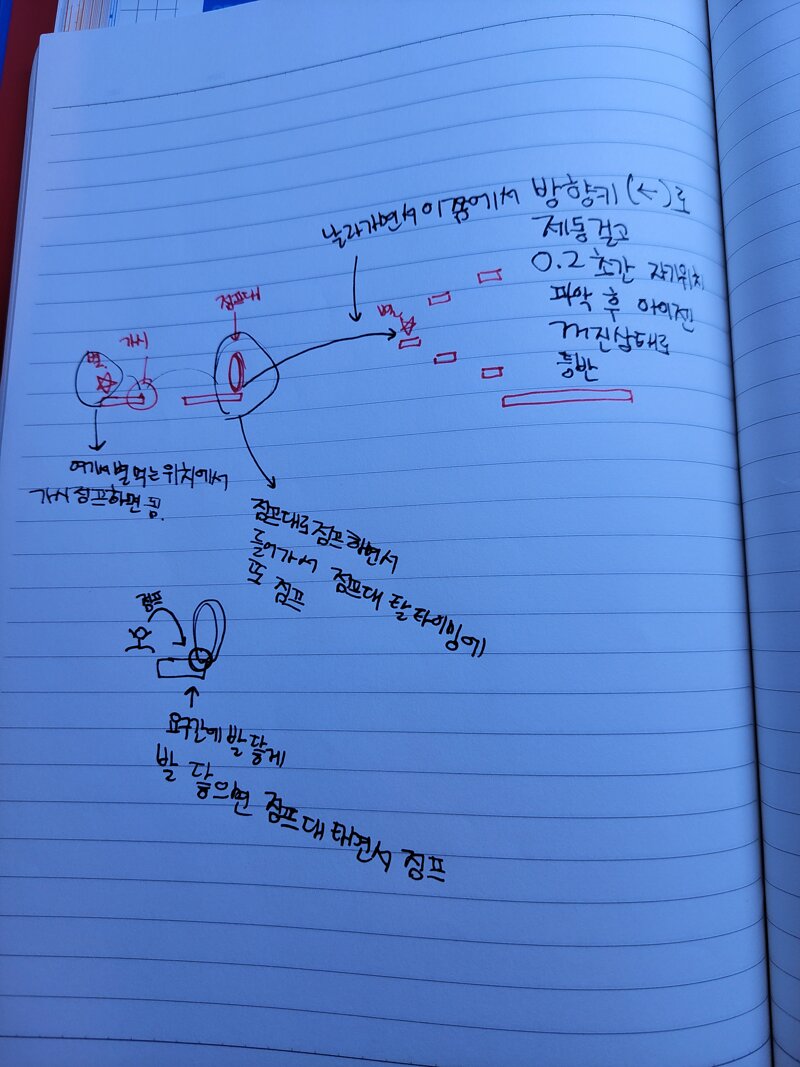 날라가면서 이쯤에서 방향키 (←)로
제동걸고
0.2초간 자기위치
파악 후 아이젠
꺼진상태로
등반
점프대
가시
별
별
여기서 별먹는위치에서
가시점프하면 됨.
점프대로점프하면서
들어가서 점프대 탈 타이밍에
또 점프
점프
요구간에 발 닿게
발 닿으면 점프대 타면서 점프